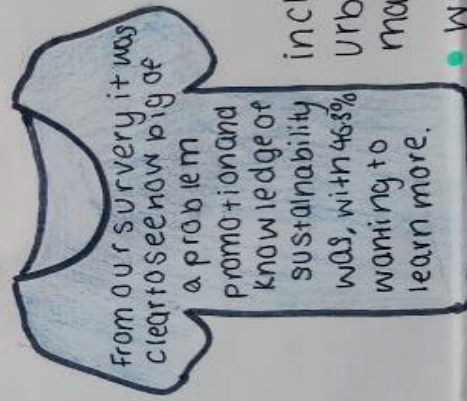 From our survery it was
clear to see how big of
a problem
promotion and
knowledge of
sustainability
was, with 46.3%
wanting to
learn more.
incl
urb
ma
• W